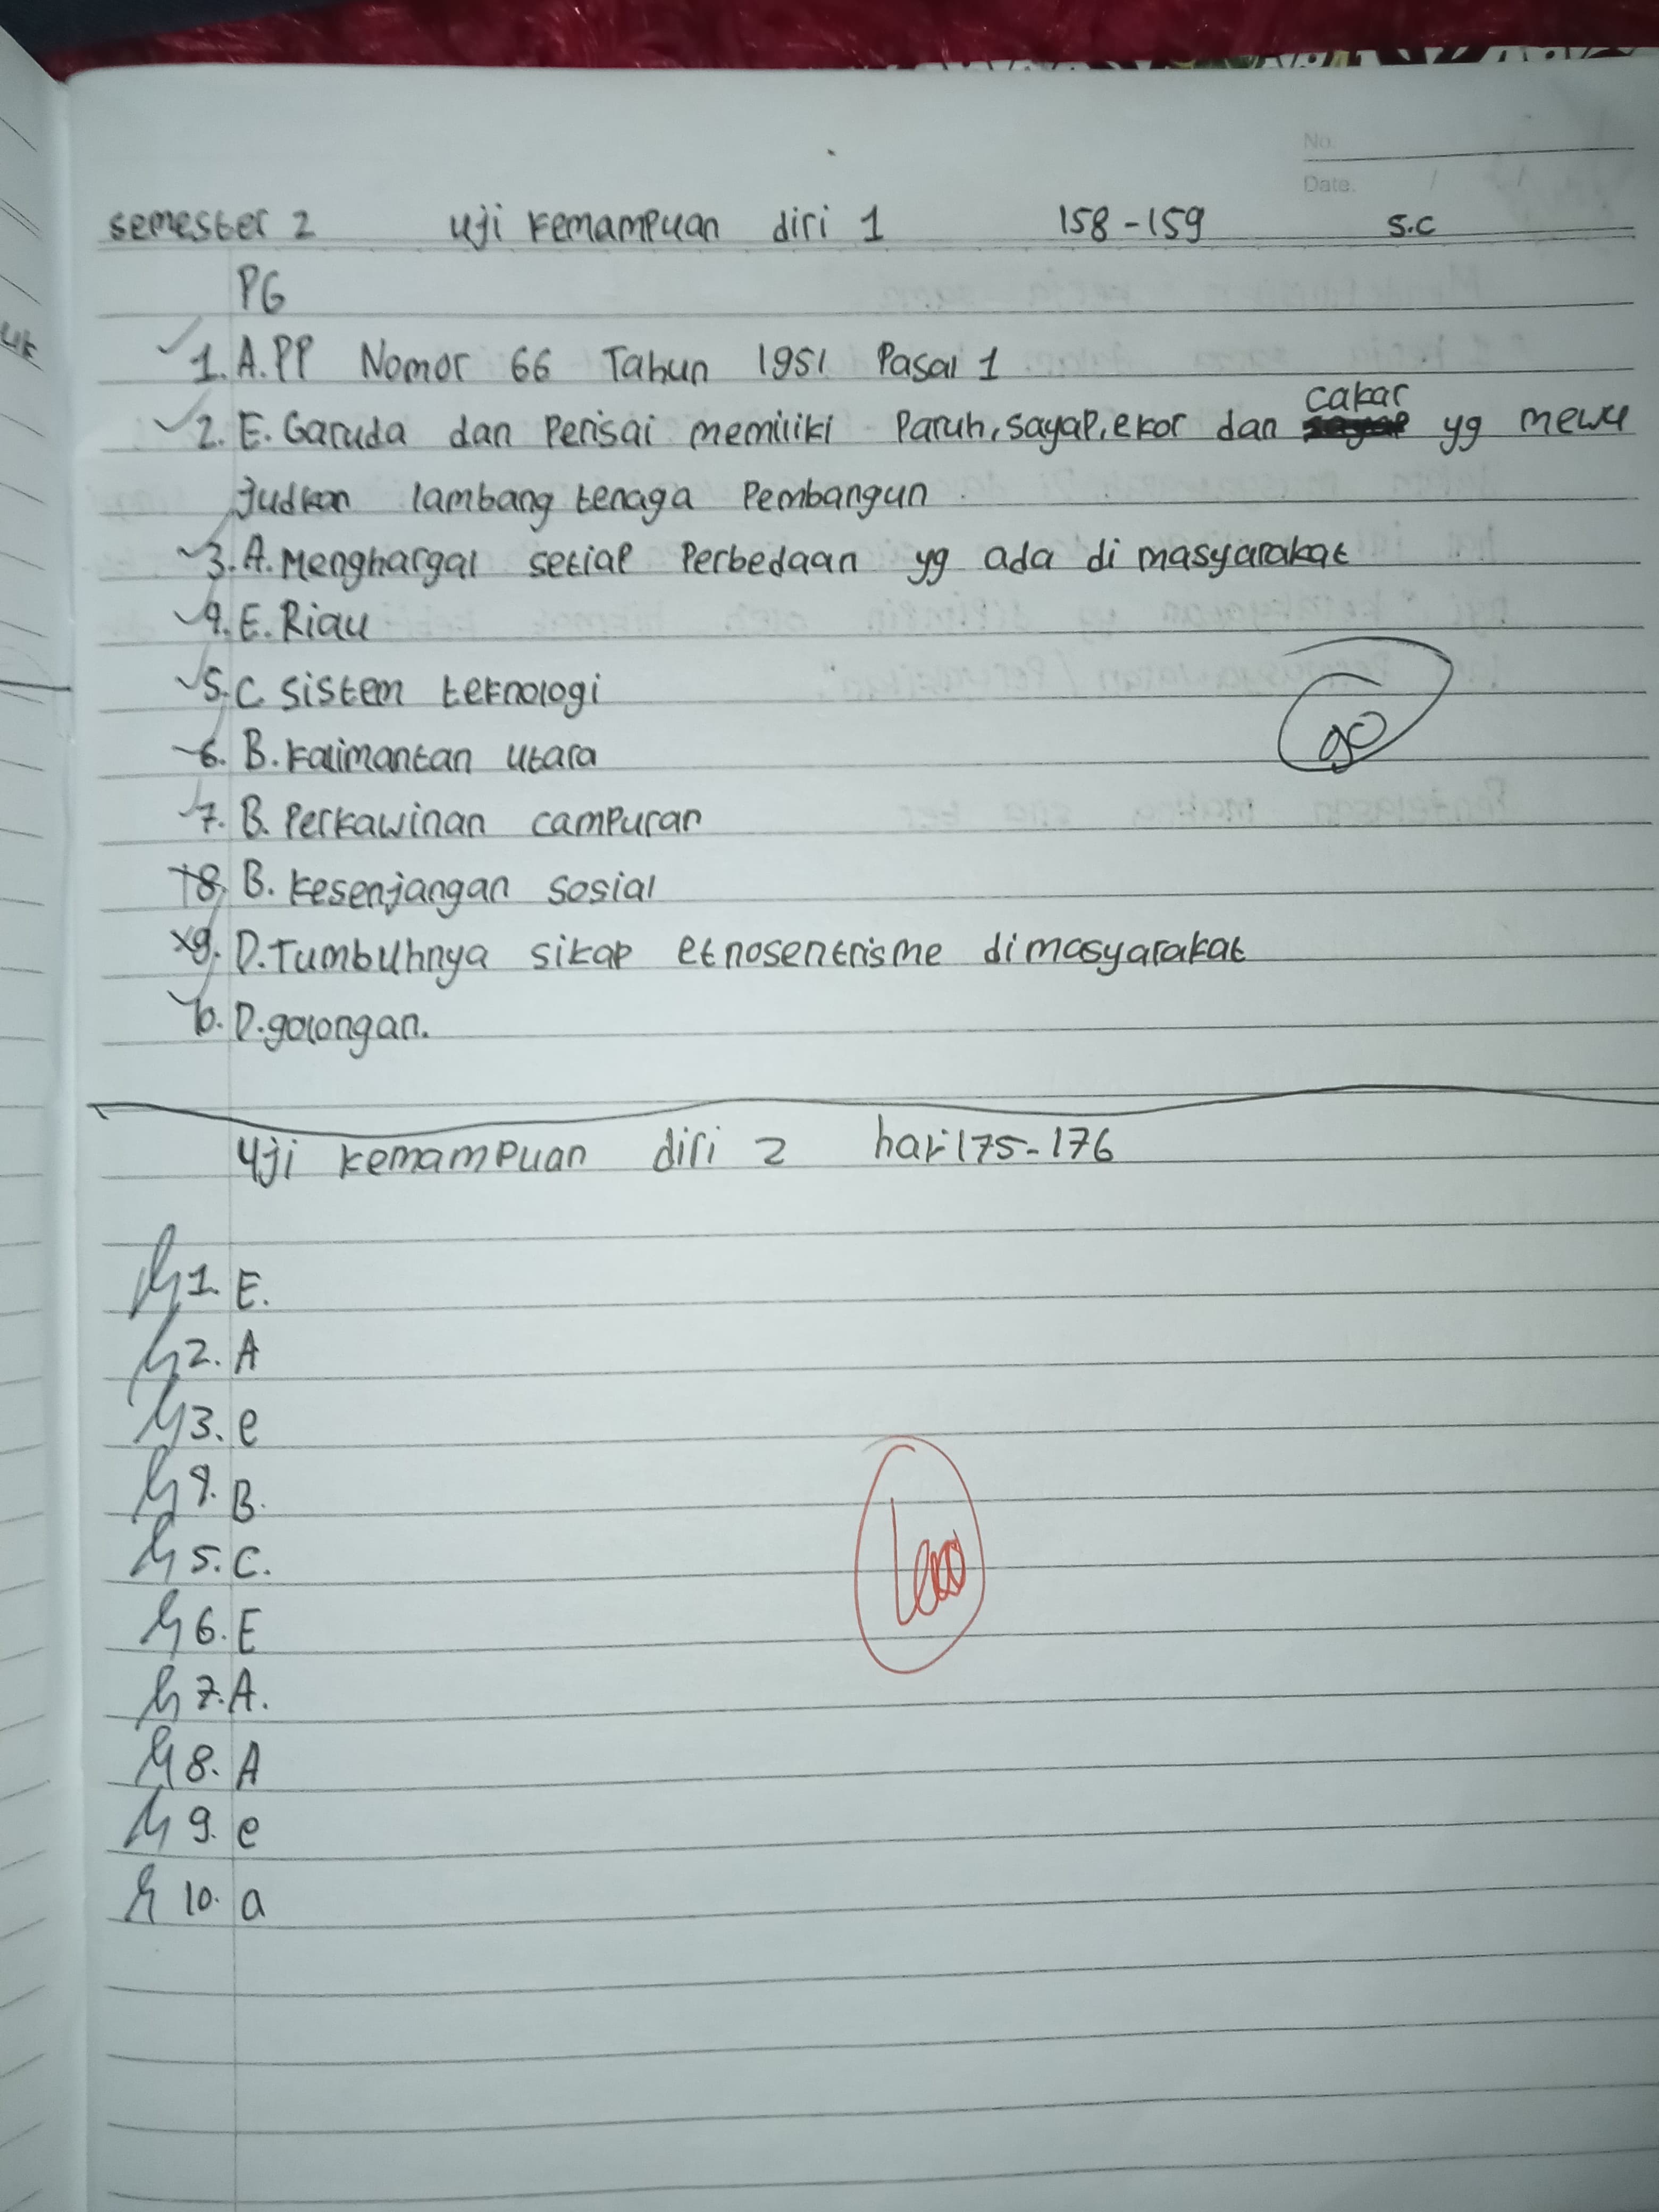 No.
Date. /
semester 2 uji kemampuan diri 1 158-159 S.C
PG
1. A. PP Nomor 66 Tahun 1951 Pasal 1
cakar
2. E. Garuda dan Perisai memiliki Paruh, sayap, ekor dan yg mewu
judkan lambang tenaga Pembangun
3. A. Menghargai setiap Perbedaan yg ada di masyarakat
4. E. Riau
5. C. sistem teknologi
6. B. kalimantan utara
7. B. Perkawinan campuran
8. B. kesenjangan sosial
9. D. Tumbuhnya sikap etnosentrisme di masyarakat
10. D. golongan.
Uji kemampuan diri 2 hal 175-176
1. E.
2. A
3. e
4. B.
5. C.
6. E
7. A.
8. A
9. e
10. a
100